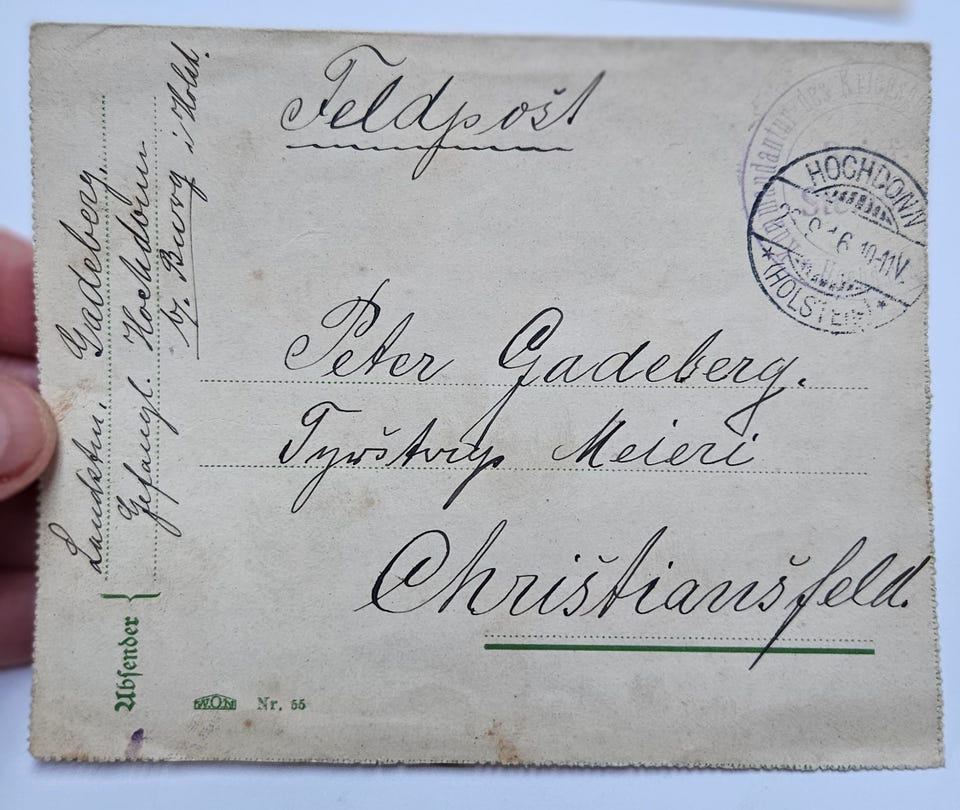 Feldpost
Kommandantur des Kriegs
HOCHDONN
9 16 10-11V.
*(HOLSTEIN)*
Peter Gadeberg.
Tyrstrup Meieri
Christiansfeld.
Absender
Landstm. Gadeberg.
Gefangl. Hochdonn
b/. Burg i/Holst.
WON Nr. 55